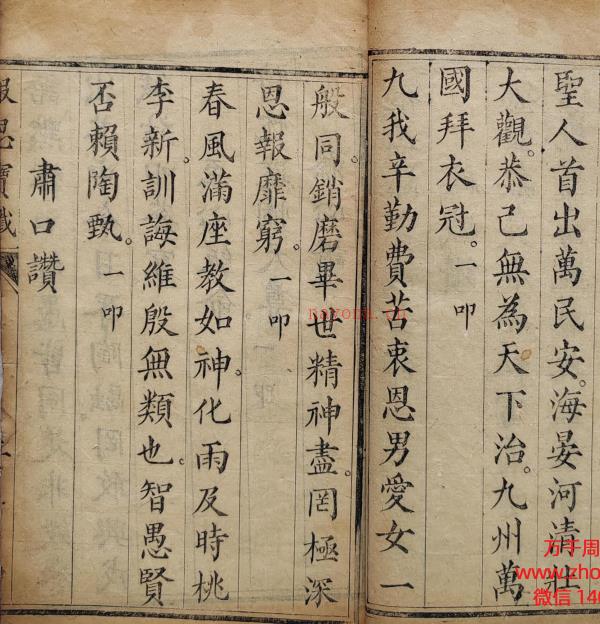 聖人首出萬民安。海晏河清壯
大觀。恭己無為天下治。九州萬
國拜衣冠。一叩
九我辛勤費苦衷恩男愛女一
般同。銷磨畢世精神盡。罔極深
恩報靡窮。一叩
春風滿座教如神。化雨及時桃
李新。訓誨維殷無類也。智愚賢
否賴陶甄。一叩
肅口讚
報恩寶懺
nayona.cn
万千周
www.zho
微信 140